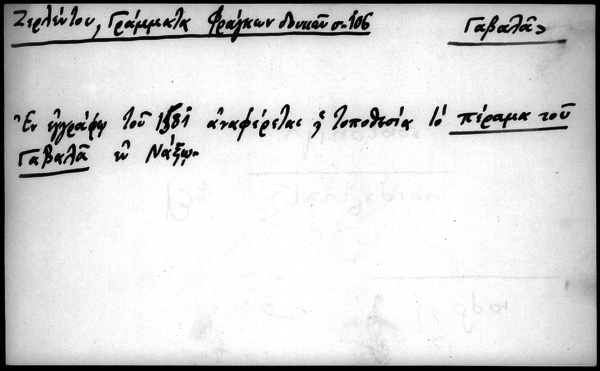 Ζερλέντου, Γράμματα Φράγκων δουκῶν σ. 106
Γαβαλᾶς
Ἐν ἐγγράφῳ τοῦ 1581 ἀναφέρεται ἡ τοποθεσία τό πέραμα τοῦ
Γαβαλᾶ ἐν Νάξῳ.